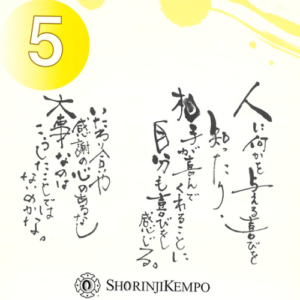 5
人に何かを与える喜びを
知ったり、
相手が喜んで
くれることに
自分も喜びを
感じる。
いたわり合いや
感謝の心のあるなし
大事なのは
こうしたことでは
ないのかな。
SHORINJIKEMPO